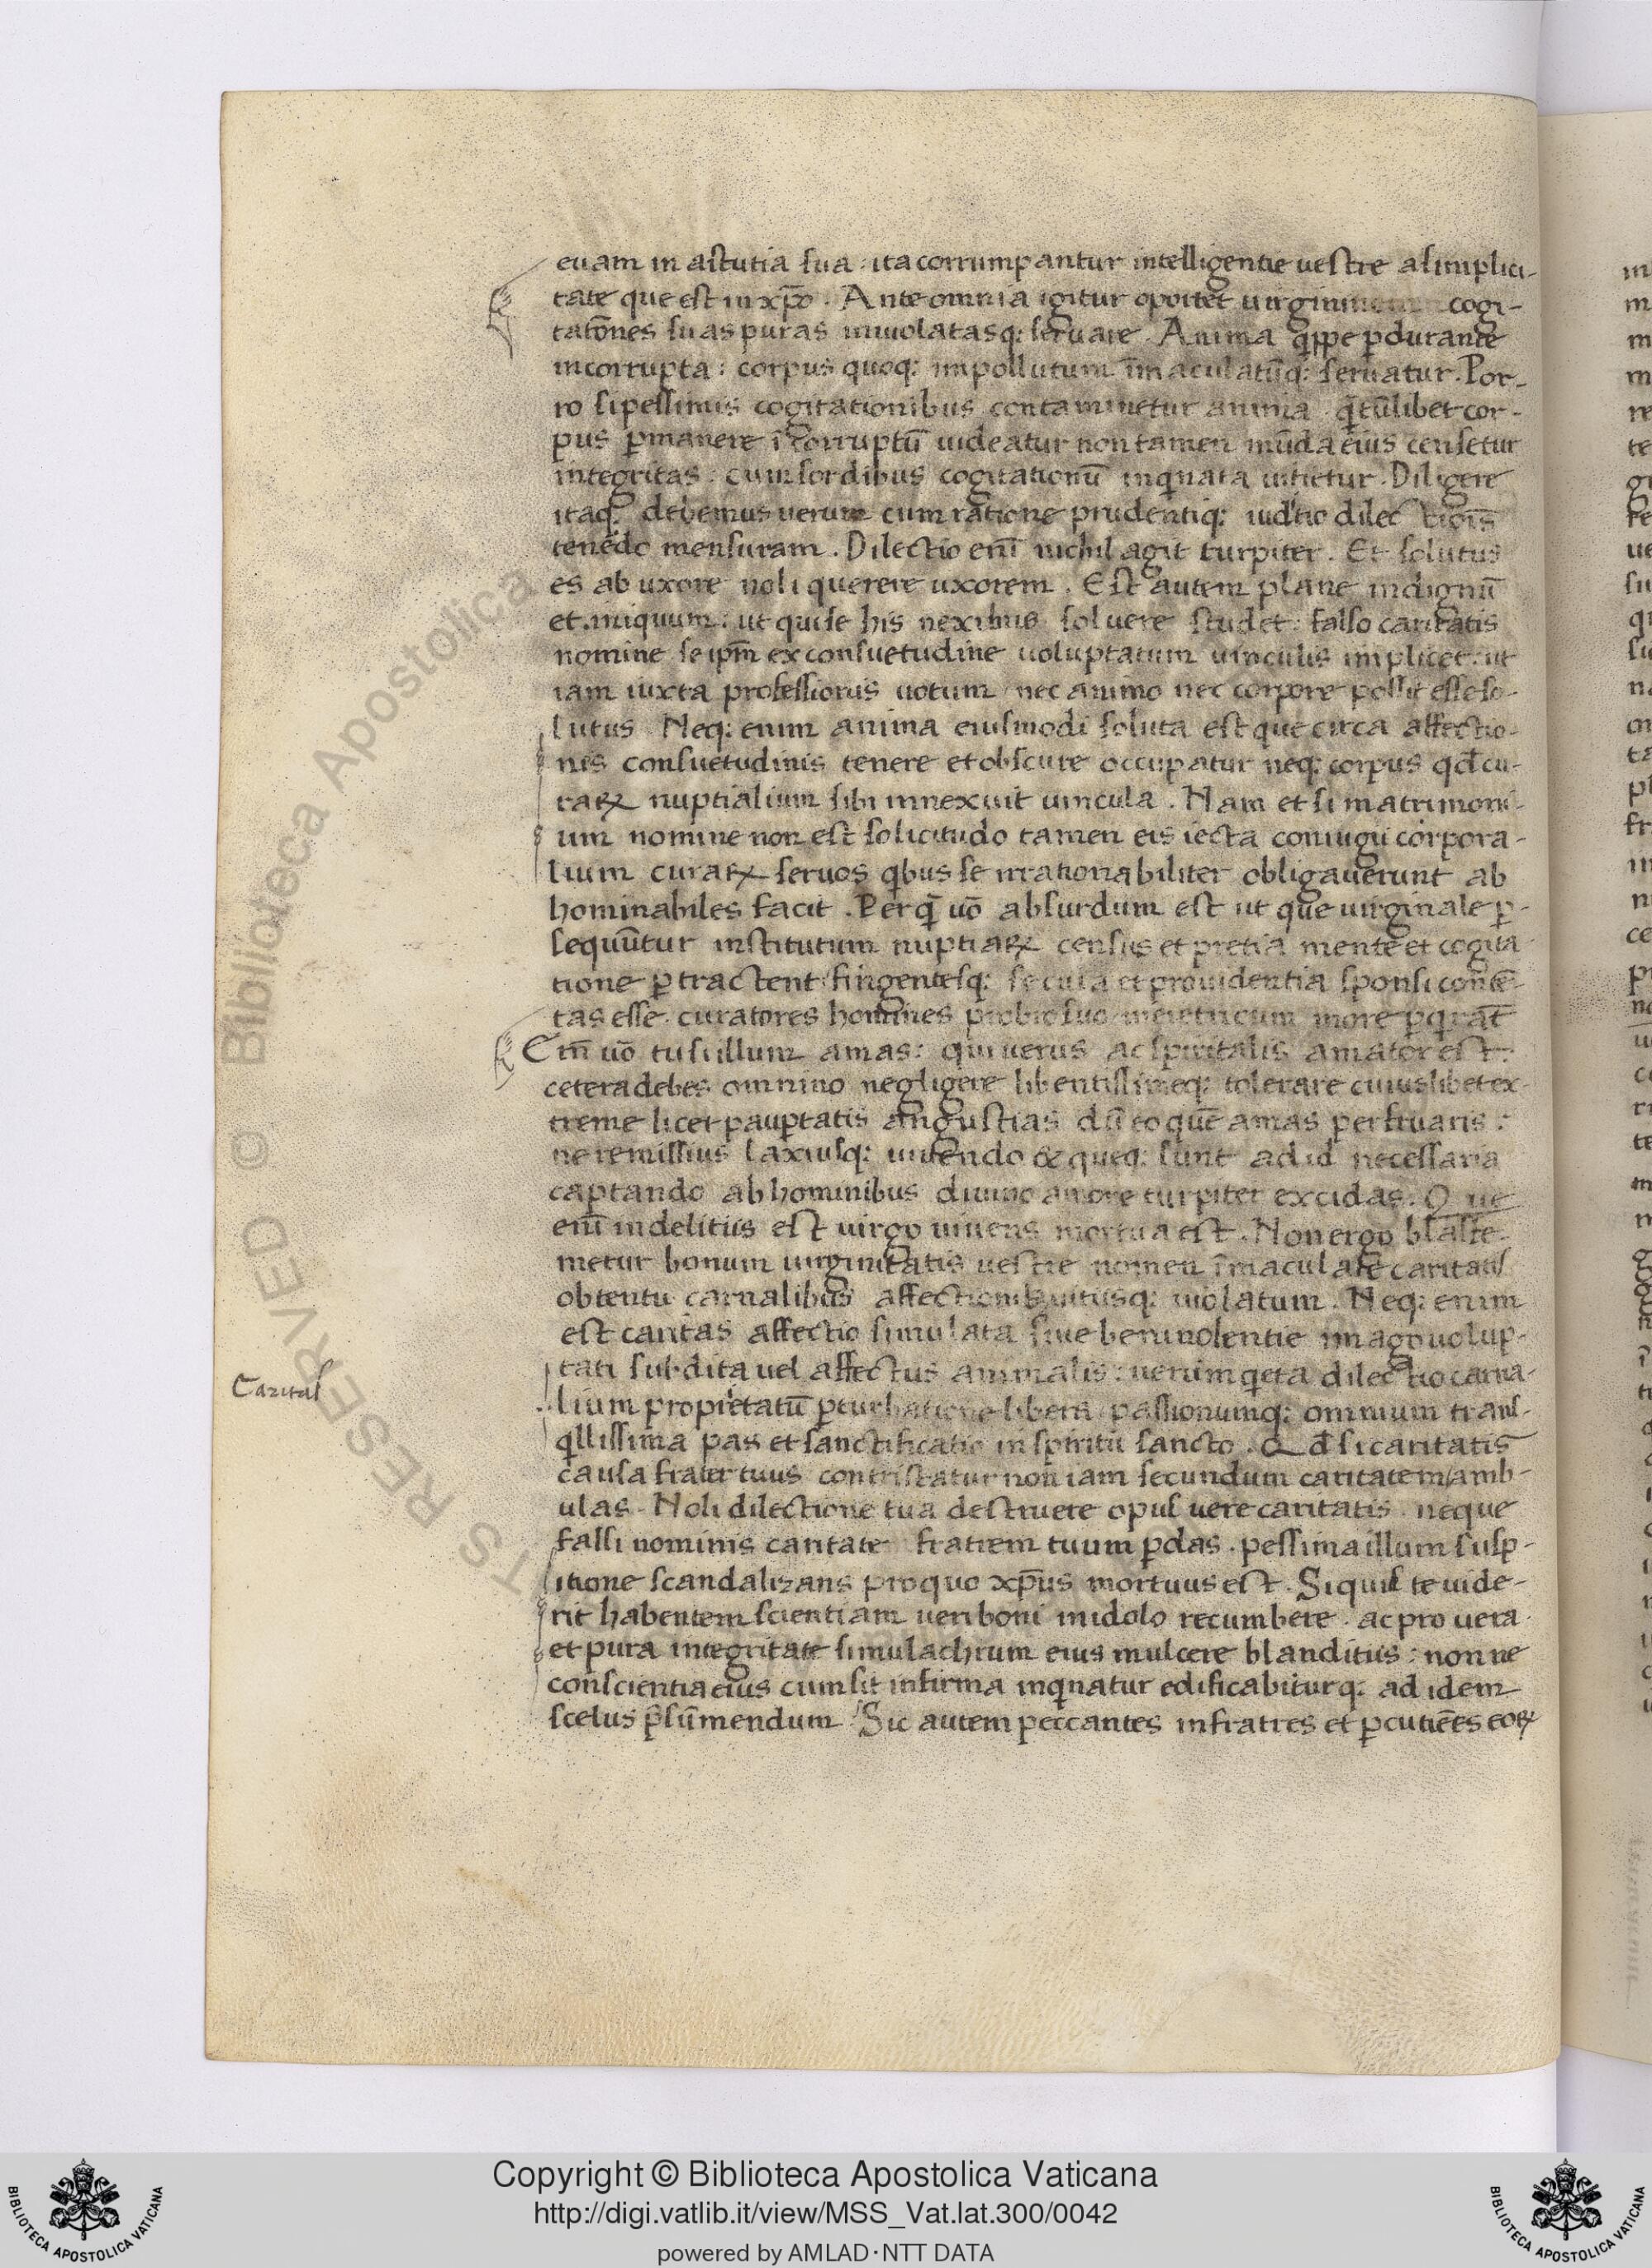 euam in astutia sua · ita corrumpantur intelligentie uestre a simplici-
tate que est in xp̄o . Ante omnia igitur oportet uirginum cogi-
tatōnes suas puras inuiolatasq: seruare . Anima q̄ppe p̱durante
incorrupta : corpus quoq: impollutum īmaculatūq: seruatur . Por-
ro si pessimis cogitationibus contaminetur anima q̄tūlibet cor-
pus p̱manere īcorruptū uideatur non tamen mūda eius censetur
integritas . cum sordibus cogitationū inq̇nata uitietur . Diligere
itaq: debemus uerum cum ratione prudentiq: iud'tio dilectiōis
tenēdo mensuram . Dilectio enī nichil agit turpiter . Et solutus
es ab uxore noli querere uxorem . Est autem plane indignū
et iniquum : ut qui se his nexibus soluere studet : falso caritatis
nomine se ip̄m ex consuetudine uoluptatum uinculis implicet : ut
iam iuxta professionis uotum nec animo nec corpore possit esse so-
lutus Neq: enim anima eiusmodi soluta est que circa affectio-
nis consuetudinis tenere et obscure occupatur neq: corpus qđ cu-
raꝝ nuptialium sibi innexuit uincula . Nam et si matrimoni-
um nomine non est solicitudo tamen eis iecta coniugii corpora-
lium curaꝝ seruos q̇bus se irrationabiliter obligauerunt ab
hominabiles facit . Perq̄ uō absurdum est ut que uirginale p̱-
sequūtur institutum nuptiaꝝ census et pretia mente et cogita
tione p̱tractent / fingentesq: se cura et prouidentia sponsi contē-
tas esse . curatores homines probro suo meretricum more p̱q̇rāt
Em̄ uō tu si illum amas : qui uerus ac spiritalis amator est :
cetera debes omnino negligere libentissimeq: tolerare cuiuslibet ex-
treme licet paup̱tatis angustias dū eo quē amas perfruaris :
ne remissius laxiusq: uiuendo & queq: sunt ad id necessaria
captando ab hominibus diuino amore turpiter excidas . Que
enī in delitiis est uirgo uiuens mortua est . Non ergo blasfe-
metur bonum uirginitatis uestre nomen īmaculate caritatis
obtentu carnalibus affectionib, uitiisq: uiolatum . Neq: enim
est caritas affectio simulata siue beniuolentie imago uolup-
tati subdita uel affectus animalis : uerum q̇eta dilectio carna-
lium proprietatū p̱turbatione libera / passionumq: omnium trans-
q̇llissima pas et sanctificatio in spiritu sancto . Qđ si caritatis
causa frater tuus contristatur non iam secundum caritatem / amb-
ulas . Noli dilectione tua destruere opus uere caritatis . neque
falsi nominis caritate fratrem tuum p̱das . pessima illum susp-
itione scandalizans pro quo xp̄us mortuus est . Si quis te uide-
rit habentem scientiam ueri boni in idolo recumbere . ac pro uera
et pura integritate simulachrum eius mulcere blanditiis : non ne
conscientia eius cum sit infirma inq̇natur edificabiturq: ad idem
scelus p̄sūmendum / Sic autem peccantes in fratres et p̱cutiētes eoꝝ
Caritas
Copyright © Biblioteca Apostolica Vaticana
http://digi.vatlib.it/view/MSS_Vat.lat.300/0042
powered by AMLAD·NTT DATA
BIBLIOTECA APOSTOLICA VATICANA
BIBLIOTECA APOSTOLICA VATICANA